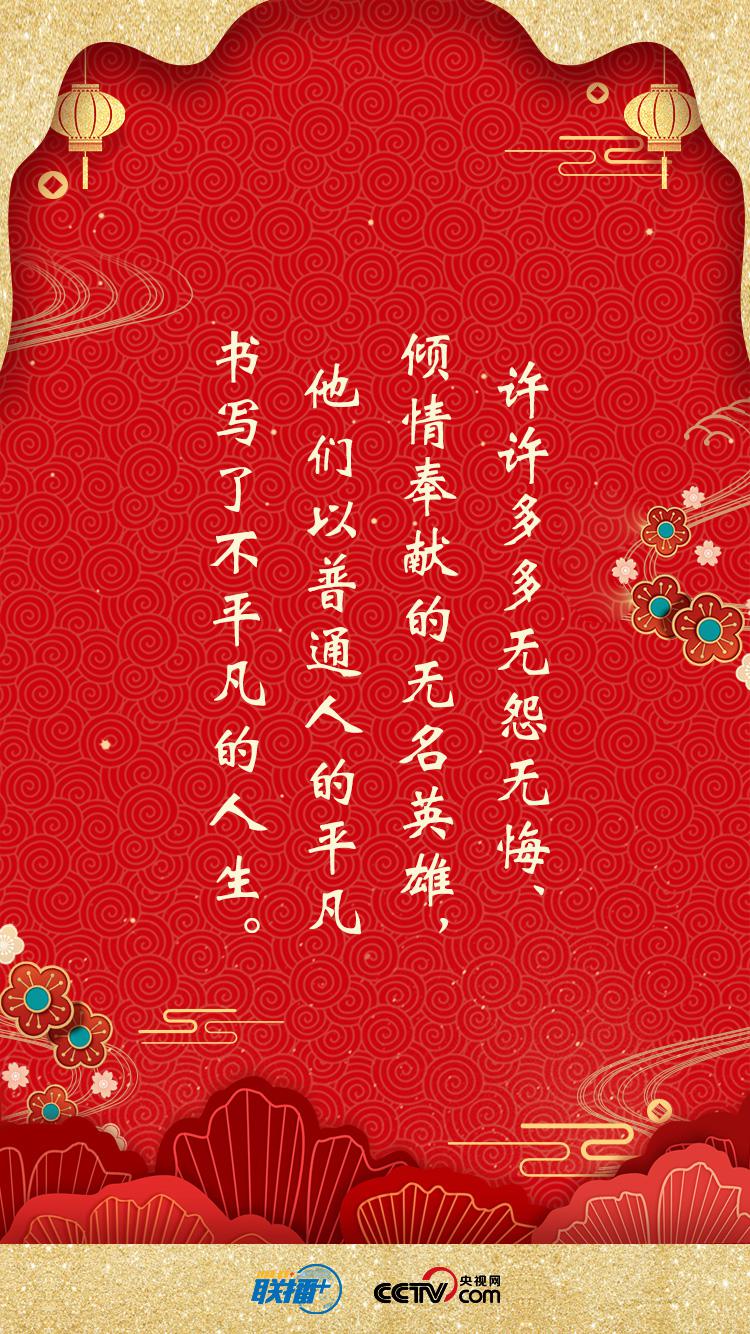 许许多多无怨无悔、
倾情奉献的无名英雄，
他们以普通人的平凡
书写了不平凡的人生。
联播+
CCTV.com 央视网